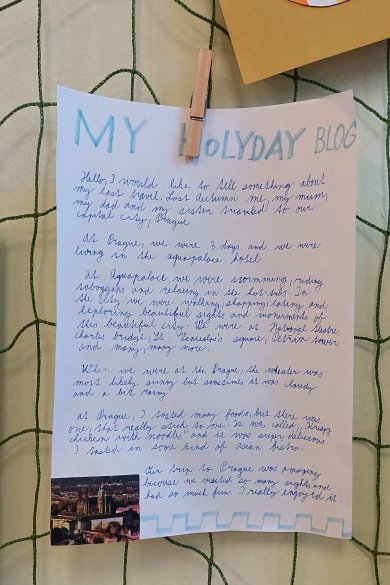 MY HOLYDAY BLOG
Hello, I would like to tell something about
my last travel. Last Autumn me, my mum,
my dad and my sister traveled to our
capital city, Prague.
At Prague, we were 3 days and we were
living in the aquapalace hotel.
At Aquapalace, we were swimming, riding
toboggans and relaxing in the hot-tubs. In
the city we were walking, shopping, eating and
exploring beautiful sights and monuments of
this beautiful city. We were at National theatre
charles bridge, St. Venceslas's square, Petrin tower
and many, many more.
When we were at the Prague, the wheater was
most likely sunny but sometimes it was cloudy
and a bit rainy.
At Prague, I tasted many foods, but there was
one, that really stick to me. It was called „Krispy
chicken with noodles" and it was super delicious
I tasted in some kind of asian bistro.
Our trip to Prague was amazing
because we visited so many sights and
had so much fun. I really enjoyed it.